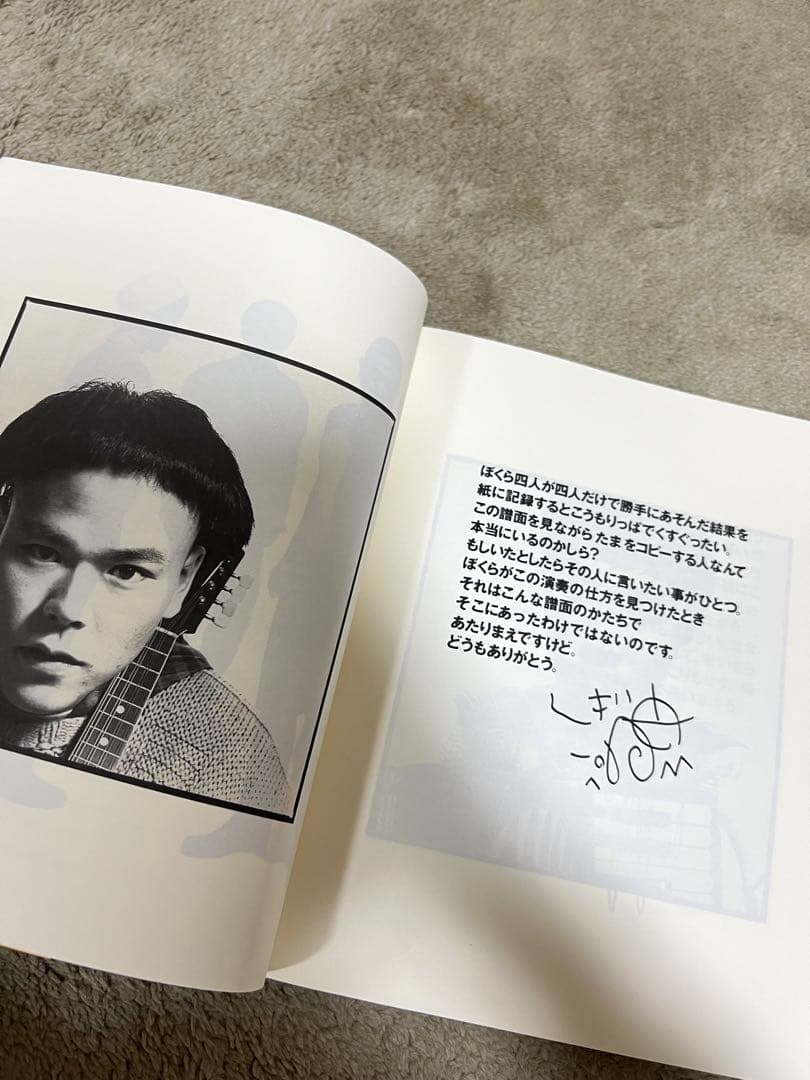 ぼくら四人が四人だけで勝手にあそんだ結果を
紙に記録するとこうもりっぱでくすぐったい。
この譜面を見ながら たまをコピーする人なんて
本当にいるのかしら?
もしいたとしたらその人に言いたい事がひとつ。
ぼくらがこの演奏の仕方を見つけたとき
それはこんな譜面のかたちで
そこにあったわけではないのです。
あたりまえですけど。
どうもありがとう。